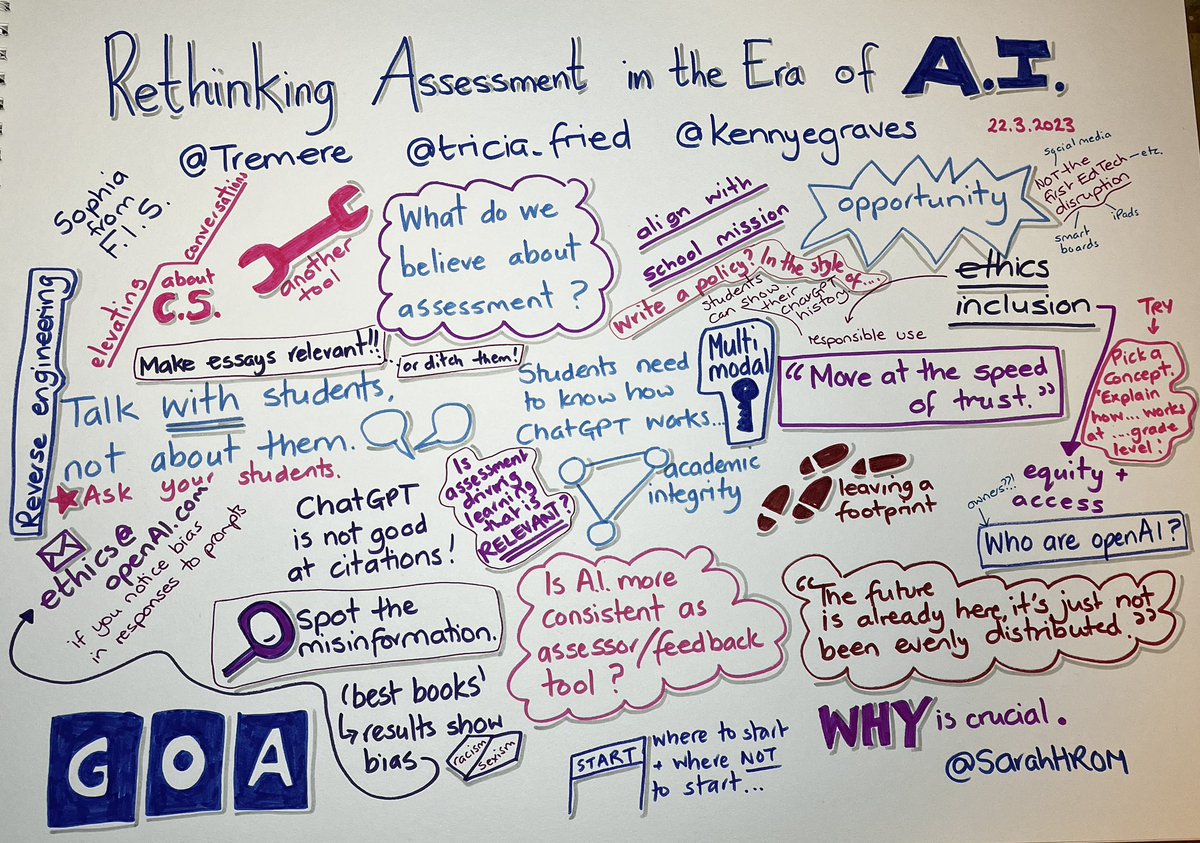 Rethinking Assessment in the Era of A.I.
@Tremere @tricia_fried @kennyegraves
22.3.2023
Sophia
from
F.I.S.
elevating
conversations
about
C.S.
another
tool
What do we
believe about
assessment?
align with
school mission
Write a policy? In the style of....
opportunity
social media
NOT the
first EdTech
disruption
etc.
smart
boards
iPads
students
can show
their
ChatGPT
history
responsible use
ethics
inclusion
Reverse engineering
Make essays relevant!!
..or ditch them!
Talk with students,
not about them.
Ask your students.
Students need
to know how
ChatGPT works...
Multi
modal
"Move at the speed
of trust."
Try
Pick a
concept.
"Explain
how... works
at ...grade
level!
equity +
access
ethics@
openAI.com
if you notice bias
in responses to prompts
ChatGPT
is not good
at citations!
Is
assessment
driving
learning
that is
RELEVANT?
academic
integrity
leaving a
footprint
owners??!
Who are openAI?
Spot the
misinformation.
Is A.I. more
consistent as
assessor/feedback
tool?
"The future
is already here, it's just not
been evenly distributed."
'best books'
results show
bias
racism
sexism
GOA
START
where to start
+ where NOT
to start...
WHY is crucial.
@SarahHROM